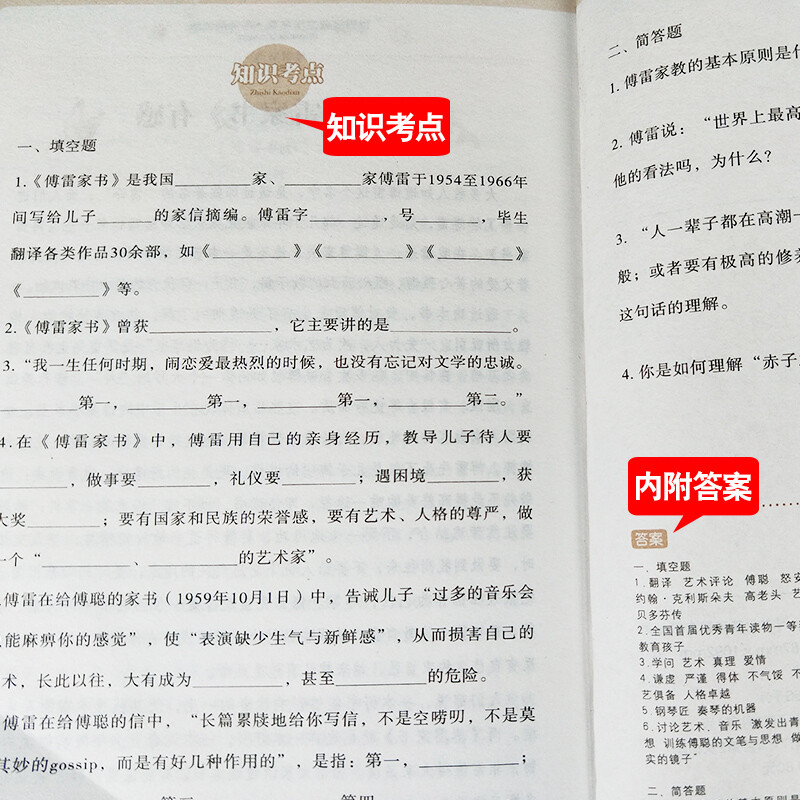 知识考点
Zhishi Kaodian
知识考点
一、填空题
1.《傅雷家书》是我国________家、________家傅雷于1954至1966年
间写给儿子______的家信摘编。傅雷字________，号________，毕生
翻译各类作品30余部，如《________》《________》《________》
《________》等。
2.《傅雷家书》曾获____________，它主要讲的是____________。
3.“我一生任何时期，闹恋爱最热烈的时候，也没有忘记对文学的忠诚。
________第一，________第一，________第一，________第二。”
4.在《傅雷家书》中，傅雷用自己的亲身经历，教导儿子待人要
________，做事要________，礼仪要________；遇困境________，获
大奖________；要有国家和民族的荣誉感，要有艺术、人格的尊严，做
一个“________、________的艺术家”。
傅雷在给傅聪的家书（1959年10月1日）中，告诫儿子“过多的音乐会
能麻痹你的感觉”，使“表演缺少生气与新鲜感”，从而损害自己的
术，长此以往，大有成为________，甚至________的危险。
傅雷在给傅聪的信中，“长篇累牍地给你写信，不是空唠叨，不是莫
其妙的gossip，而是有好几种作用的”，是指：第一，________；
二、简答题
1.傅雷家教的基本原则是什
2.傅雷说：“世界上最高
他的看法吗，为什么？
3.“人一辈子都在高潮
般；或者要有极高的修养
这句话的理解。
4.你是如何理解“赤子
内附答案
答案
一、填空题
1.翻译 艺术评论 傅聪 怒安
约翰·克利斯朵夫 高老头 艺
贝多芬传
2.全国首届优秀青年读物一等
教育孩子
3.学问 艺术 真理 爱情
4.谦虚 严谨 得体 不气馁 不
艺俱备 人格卓越
5.钢琴匠 奏琴的机器
6.讨论艺术、音乐 激发出青
想 训练傅聪的文笔与思想 做
实的镜子”
二、简答题